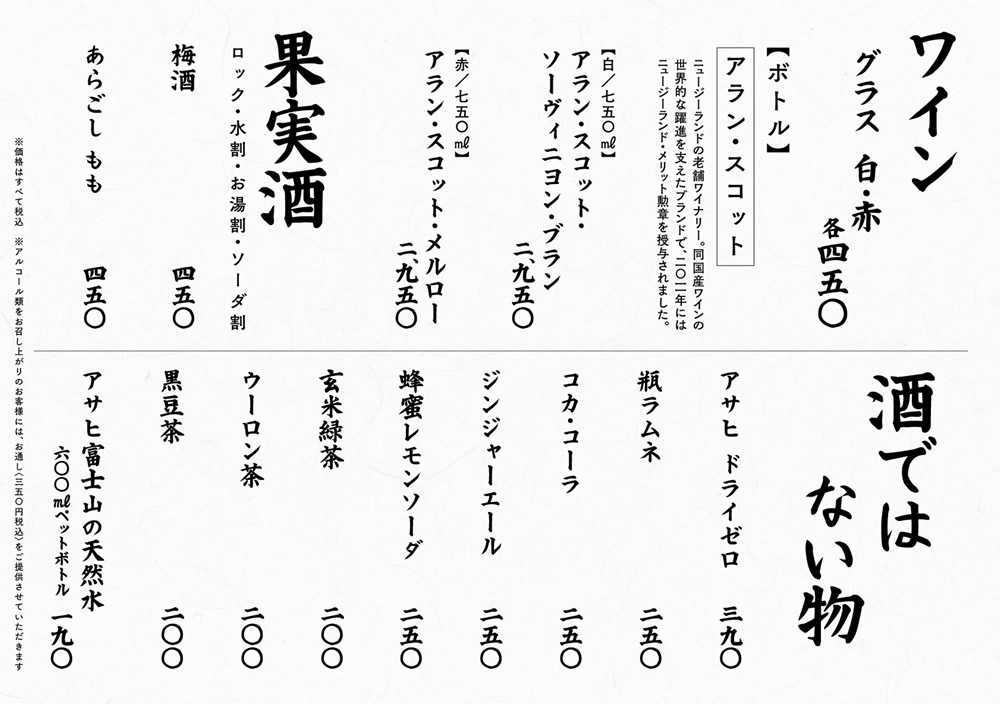 ワイン
グラス 白・赤
各四五〇
【ボトル】
アラン・スコット
ニュージーランドの老舗ワイナリー。同国産ワインの
世界的な躍進を支えたブランドで、二〇一一年には
ニュージーランド・メリット勲章を授与されました。
【白／七五〇㎖】
アラン・スコット・
ソーヴィニヨン・ブラン
二、九五〇
【赤／七五〇㎖】
アラン・スコット・メルロー
二、九五〇
果実酒
ロック・水割・お湯割・ソーダ割
梅酒 四五〇
あらごし もも 四五〇
酒では
ない物
アサヒ ドライゼロ 三九〇
瓶ラムネ 二五〇
コカ・コーラ 二五〇
ジンジャーエール 二五〇
蜂蜜レモンソーダ 二五〇
玄米緑茶 二〇〇
ウーロン茶 二〇〇
黒豆茶 二〇〇
アサヒ富士山の天然水
六〇〇㎖ペットボトル 一九〇
※価格はすべて税込 ※アルコール類をお召し上がりのお客様には、お通し（三五〇円税込）をご提供させていただきます